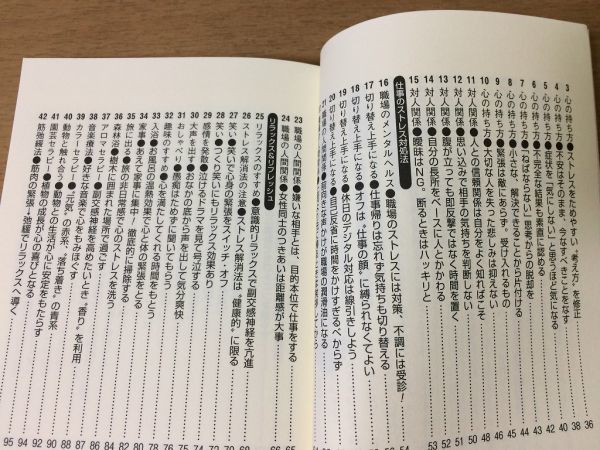 3 心の持ち方●ストレスをためやすい“考え方”を修正
4 心の持ち方●先のことはさておき、今なすべきことをなす
5 心の持ち方●症状を「気にしない」と思うほど気になる
6 心の持ち方●「ねばならない」思考からの脱却を
7 心の持ち方●不完全な結果も素直に認める
8 心の持ち方●小さな、解決できることから片付ける
9 心の持ち方●緊張は敵にあらず。受け入れるもの
10 心の持ち方●大切なものを失った悲しみは抑えない
11 対人関係●人との信頼関係は自分をよく知ればこそ
12 対人関係●思い込みで相手の気持ちを判断しない
13 対人関係●腹が立っても即反撃ではなく時間を置く
14 対人関係●自分の長所をベースに人とかかわる
15 対人関係●曖昧はNG。断るときはハッキリと
仕事のストレス対処法
16 職場のメンタルヘルス●職場のストレスには対策、不調には受診!
17 切り替え上手になる●仕事帰りは忘れず気持ちも切り替える
18 切り替え上手になる●オフは“仕事の顔”に縛られなくてよい
19 切り替え上手になる●休日のデジタル対応は線引きしよう
20 切り替え上手になる●自己反省に時間をかけすぎるべからず
23 職場の人間関係●嫌いな相手とは、目的本位で仕事をする
24 職場の人間関係●女性同士のつきあいは距離感が大事
リラックス&リフレッシュ
25 リラックスのすすめ●意識的リラックスで副交感神経を亢進
26 ストレス解消法の注意●ストレス解消法は“健康的”に限る
27 笑い●笑いで心身の緊張をスイッチ・オフ
28 笑い●つくり笑いにもリラックス効果あり
29 感情を発散●泣けるドラマを見て号泣する
30 大声を出す●おなかの底から声を出し気分爽快
31 おしゃべり●愚痴はためずに聞いてもらう
32 趣味のすすめ●心を満たしてくれる時間をもとう
33 入浴●お風呂の温熱効果で心と体の緊張をとる
34 家事●あえて家事に集中! 徹底的に掃除する
35 旅に出る●旅の非日常感で心のストレスを洗う
36 森林浴●樹木に囲まれた場所で過ごす
37 アロマセラピー●副交感神経を高めたいとき“香り”を利用
38 音楽療法●好きな音楽で心をもみほぐす
39 カラーセラピー●“元気”の赤系、“落ち着き”の青系
40 動物と触れ合う●動物との生活が心に安定をもたらす
41 園芸セラピー●植物の成長が心の喜びとなる
42 筋弛緩法●筋肉の緊張→弛緩でリラックスへ導く